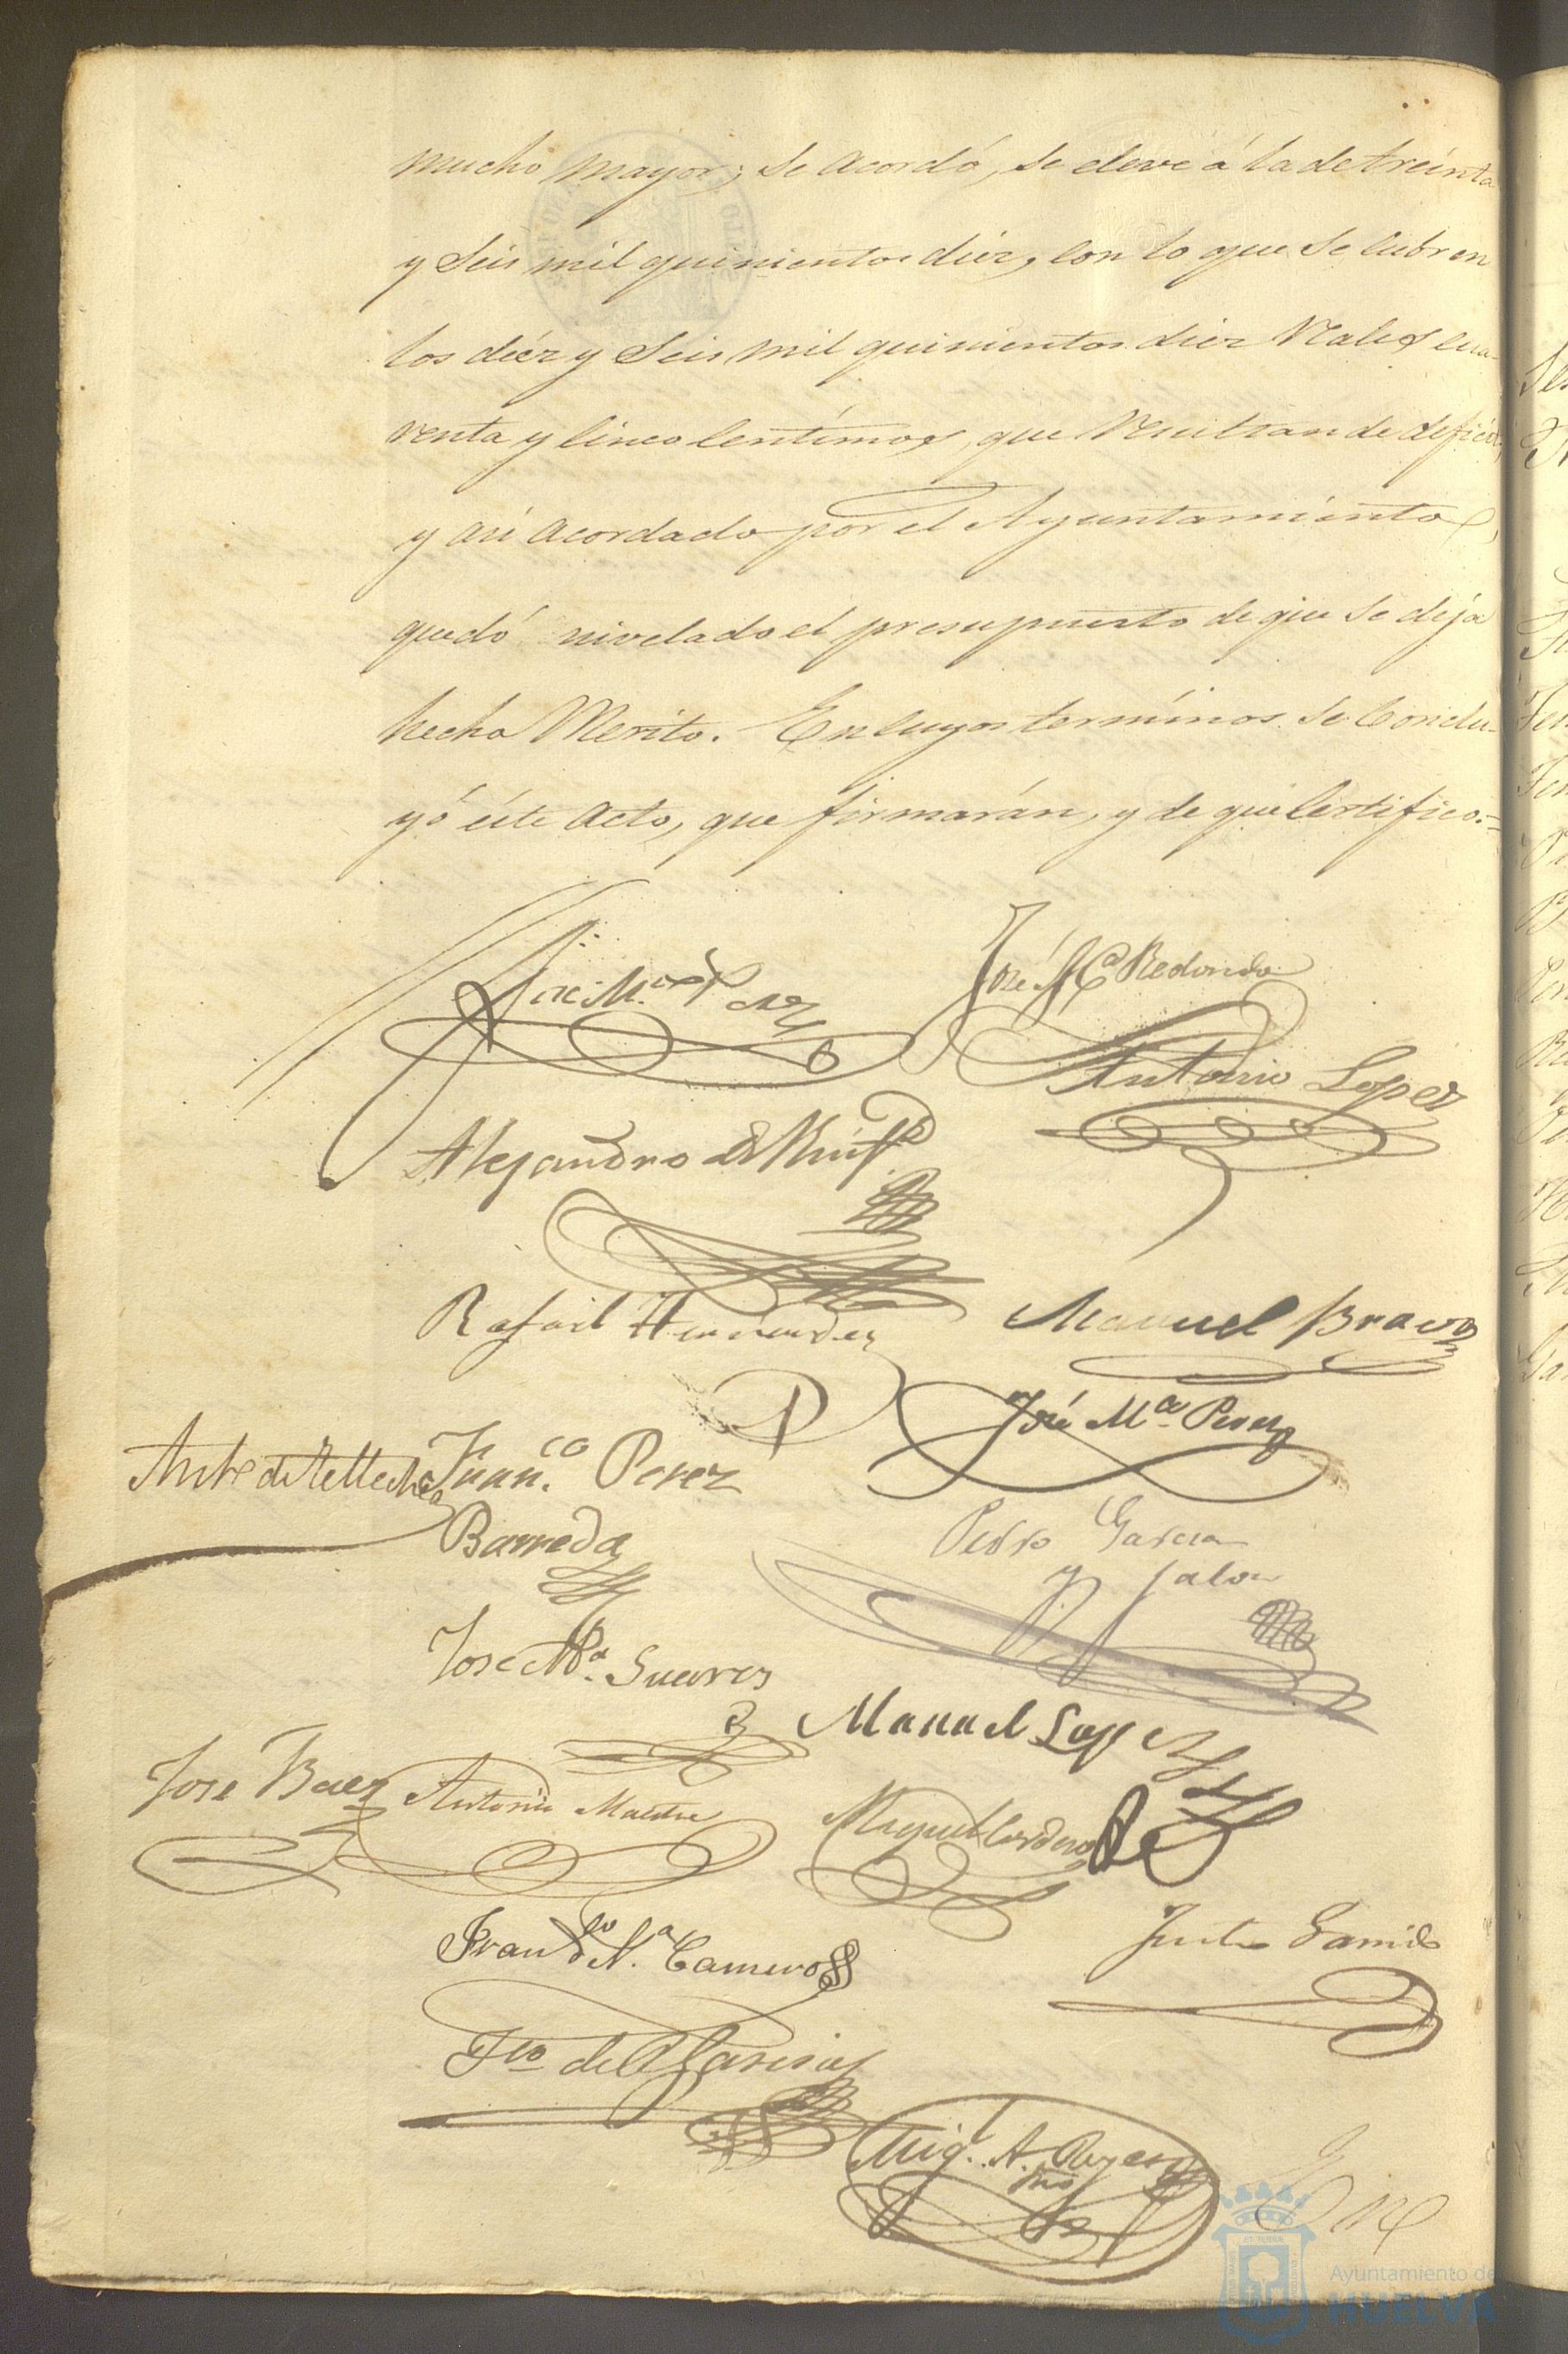 mucho mayor; se acordó, se eleve á la de treinta
y seis mil quinientos diez, con lo que se cubren
los diéz y seis mil quinientos diez reales cua-
renta y cinco centímos, que resultan de deficit,
y así acordado por el Ayuntamiento,
quedó nivelado el presupuesto de que se deja
hecho Merito. En cuyos terminos se conclu-
yó éste acto, que firmarán, y de que certifico.=
José M.ª
José Mª Redondo
Antonio Lopez
Alejandro
Rafael Hernandez
Manuel Bravo
José Mª Perez
Juan.co Perez
Barreda
Pedro Garcia
y Jalon
Jose Mª Suarez
Manuel Lopez
Jose Baez
Antonio Maestre
Miguel Cordero
Franco Mª Camero
Justo Garrido
Fco de P. Garcia
Mig. A. Reyes
Ayuntamiento de
HUELVA